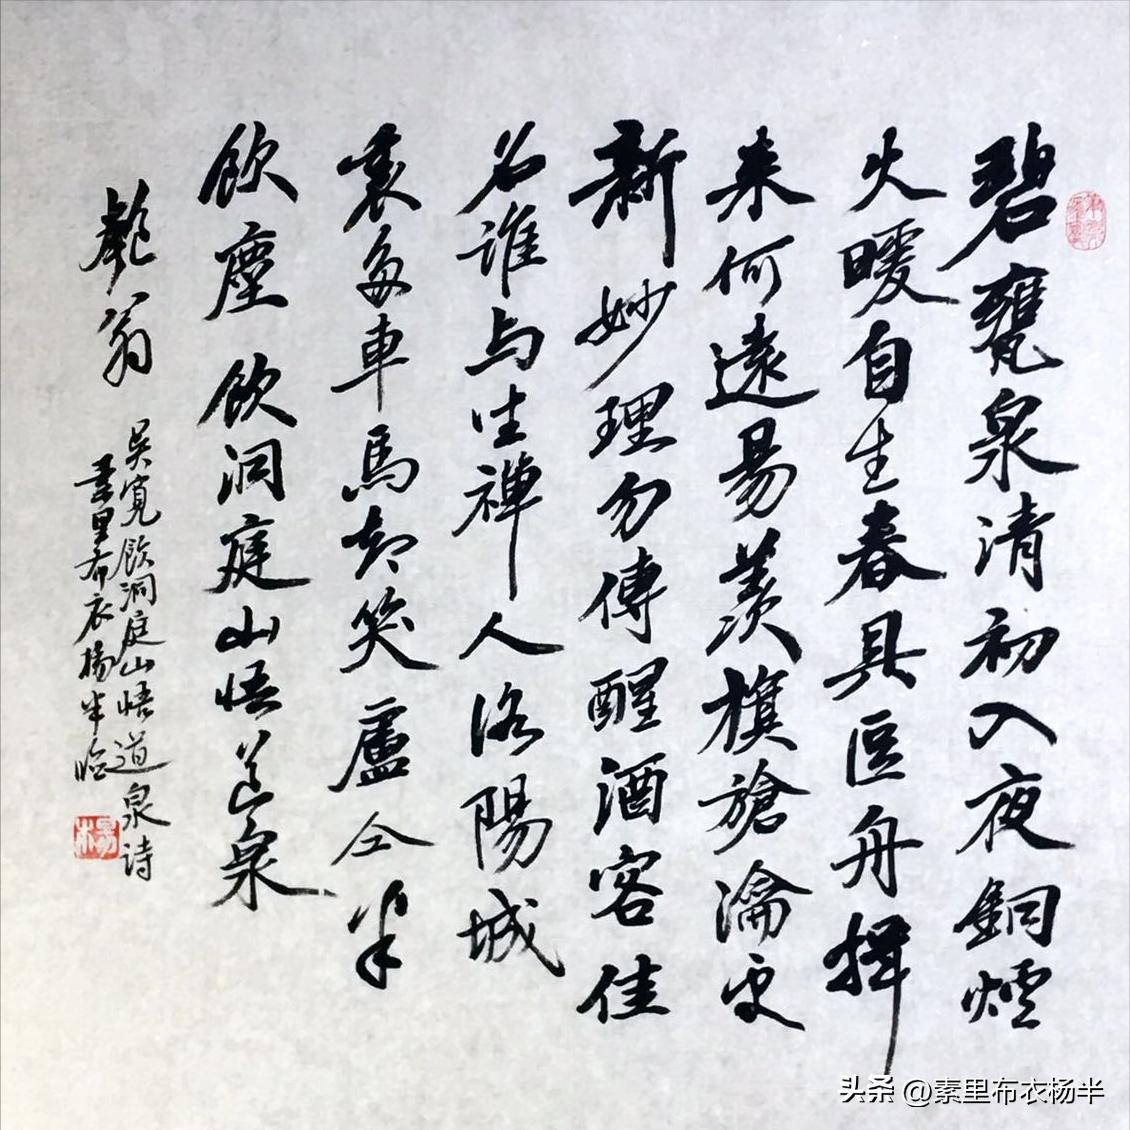 碧甕泉清初入夜銅爐
火暖自生春具區舟楫
来何遠易羨旗槍瀹更
新妙理勿傳醒酒客佳
名誰与坐禪人洛陽城
裏多車馬却笑盧仝半
飲塵 飲洞庭山悟道泉
匏翁
吳寬飲洞庭山悟道泉诗
素里布衣杨半临
头条 @素里布衣杨半